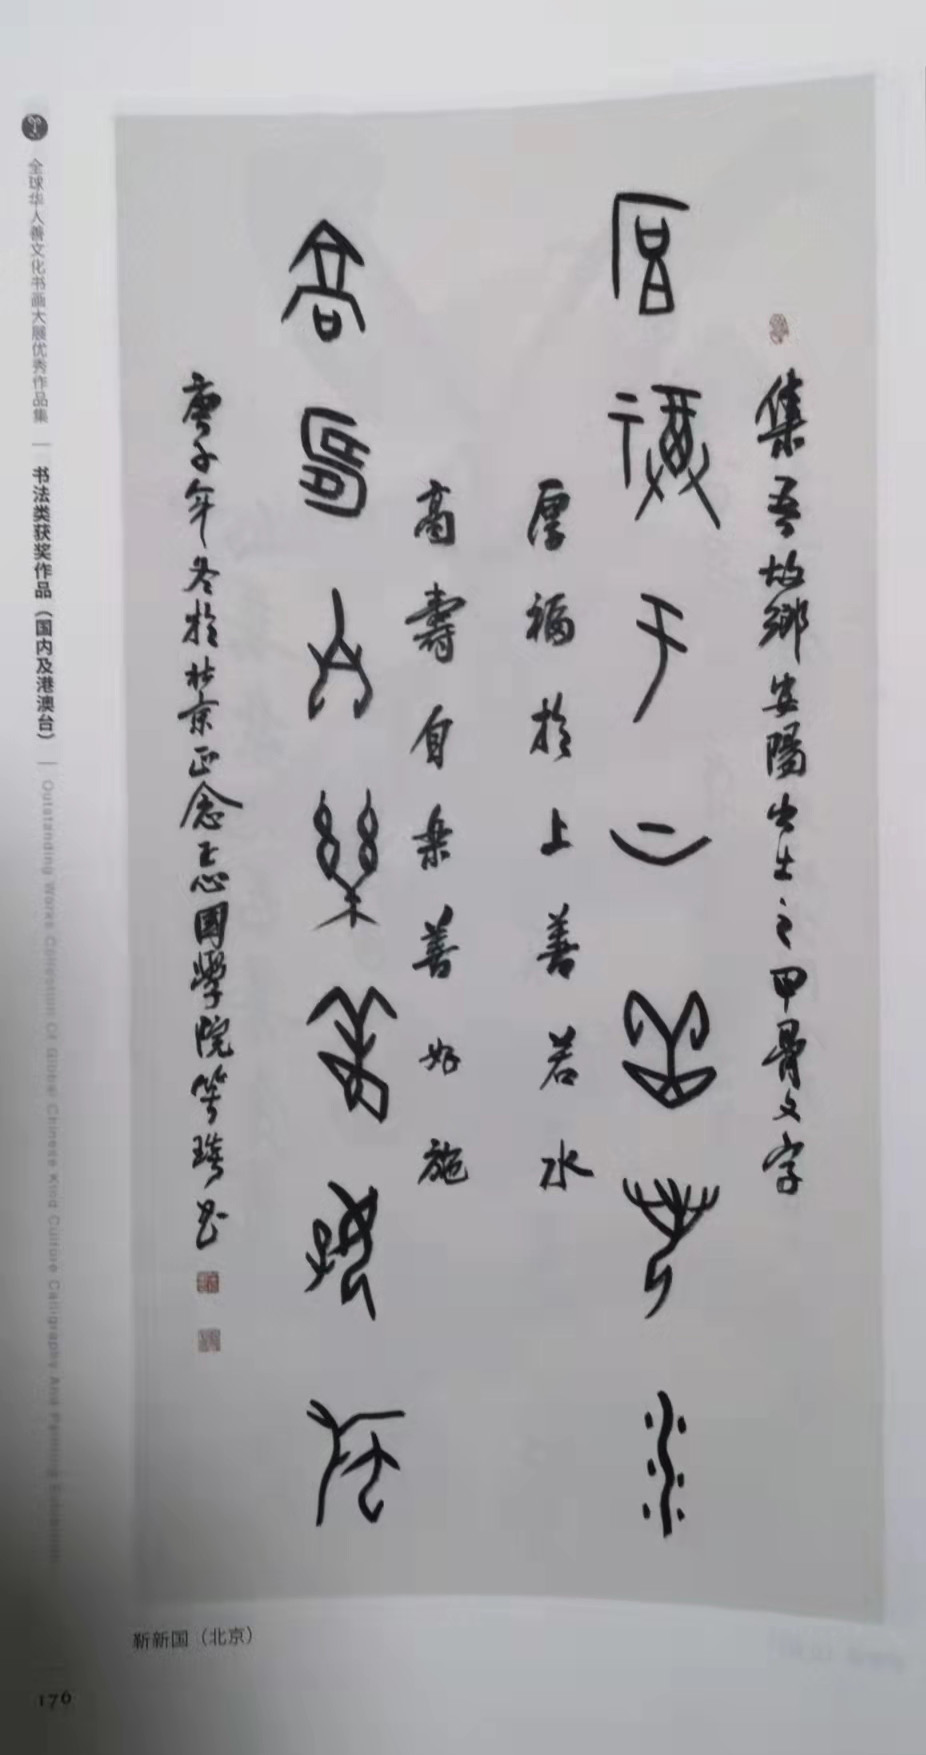 集吾故鄉安陽出土之甲骨文字
厚福于上善若水
厚福於上善若水
高壽自樂善好施
高壽自樂善好施
庚子年冬於北京正念正心國學院
全球华人善文化书画大展优秀作品集
书法类获奖作品（国内及港澳台）
Outstanding Works Collection Of Global Chinese Kind Culture Calligraphy And Painting Exhibition
靳新国（北京）
176